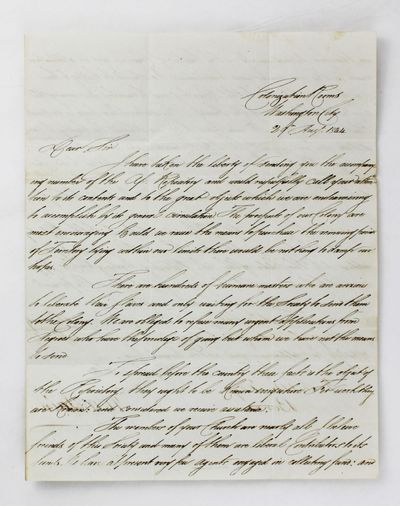 Colonization Rooms
Washington City
24th Augt. 1844
Dear Sir
I have taken the liberty of sending you the accompany
ing number of the Af. Repository and would respectfully call your atten
tion to its contents and to the great objects which we are endeavoring
to accomplish by its general circulation. The prospects of our Colony are
most encouraging. Could we raise the means to purchase the remaining
of Territory lying within our limits there would be nothing to our
hopes.
There are hundreds of humane masters who are anxious
to liberate their slaves and only waiting for the Society to send them
to the Colony. We are obliged to refuse many urgent applications from
who have the privilege of going but whom we have not the means
to send.
To spread before the country these facts is the object of
the Repository. They ought to be known For until they
are known and considered we receive no
The members of your Church are nearly all I believe
friends of the and many of them are liberal Contributors to its
funds. We have at present very few agents engaged in collecting funds: and